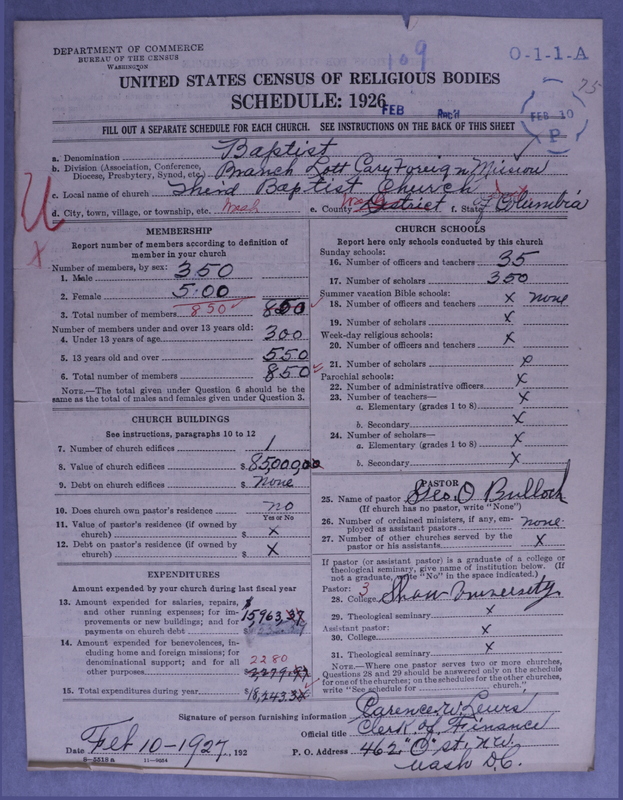 DEPARTMENT OF COMMERCE
BUREAU OF THE CENSUS
WASHINGTON
109
O-1-1-A
UNITED STATES CENSUS OF RELIGIOUS BODIES
75
SCHEDULE: 1926
FEB
FEB 10
P
FILL OUT A SEPARATE SCHEDULE FOR EACH CHURCH. SEE INSTRUCTIONS ON THE BACK OF THIS SHEET
a. Denomination Baptist
b. Division (Association, Conference, Diocese, Presbytery, Synod, etc.) Branch Lott Cary Foreign Mission
c. Local name of church Third Baptist Church
d. City, town, village, or township, etc. Wash e. County Wash District f. State of Columbia
MEMBERSHIP
Report number of members according to definition of
member in your church
Number of members, by sex:
1. Male 350
2. Female 500
3. Total number of members 850 850
Number of members under and over 13 years old:
4. Under 13 years of age 300
5. 13 years old and over 550
6. Total number of members 850
NOTE.—The total given under Question 6 should be the
same as the total of males and females given under Question 3.
CHURCH BUILDINGS
See instructions, paragraphs 10 to 12
7. Number of church edifices 1
8. Value of church edifices $ 85,000,00
9. Debt on church edifices $ None
10. Does church own pastor's residence no
Yes or No
11. Value of pastor's residence (if owned by
church) $ X
12. Debt on pastor's residence (if owned by
church) $ X
EXPENDITURES
Amount expended by your church during last fiscal year
13. Amount expended for salaries, repairs,
and other running expenses; for im-
provements or new buildings; and for
payments on church debt $ 15963,37
14. Amount expended for benevolences, in-
cluding home and foreign missions; for
denominational support; and for all
other purposes 2280
15. Total expenditures during year $ 18,243.38
CHURCH SCHOOLS
Report here only schools conducted by this church
Sunday schools:
16. Number of officers and teachers 35
17. Number of scholars 350
Summer vacation Bible schools:
18. Number of officers and teachers X none
19. Number of scholars X
Week-day religious schools:
20. Number of officers and teachers X
21. Number of scholars X
Parochial schools:
22. Number of administrative officers X
23. Number of teachers—
a. Elementary (grades 1 to 8) X
b. Secondary X
24. Number of scholars—
a. Elementary (grades 1 to 8) X
b. Secondary X
PASTOR
25. Name of pastor Geo. O Bullock
(If church has no pastor, write "None")
26. Number of ordained ministers, if any, em-
ployed as assistant pastors none
27. Number of other churches served by the
pastor or his assistants X
If pastor (or assistant pastor) is a graduate of a college or
theological seminary, give name of institution below. (If
not a graduate, write "No" in the space indicated.)
Pastor: 3
28. College Shaw University
29. Theological seminary X
Assistant pastor:
30. College X
31. Theological seminary X
NOTE.—Where one pastor serves two or more churches,
Questions 28 and 29 should be answered only on the schedule
for one of the churches; on the schedules for the other churches,
write "See schedule for church."
Signature of person furnishing information Clarence W. Lewis
Official title Clerk of Finance
Date Feb 10-1927, 192
P. O. Address 462 "O" st, n.w.
Wash D.C.
8-5518a 11—9054